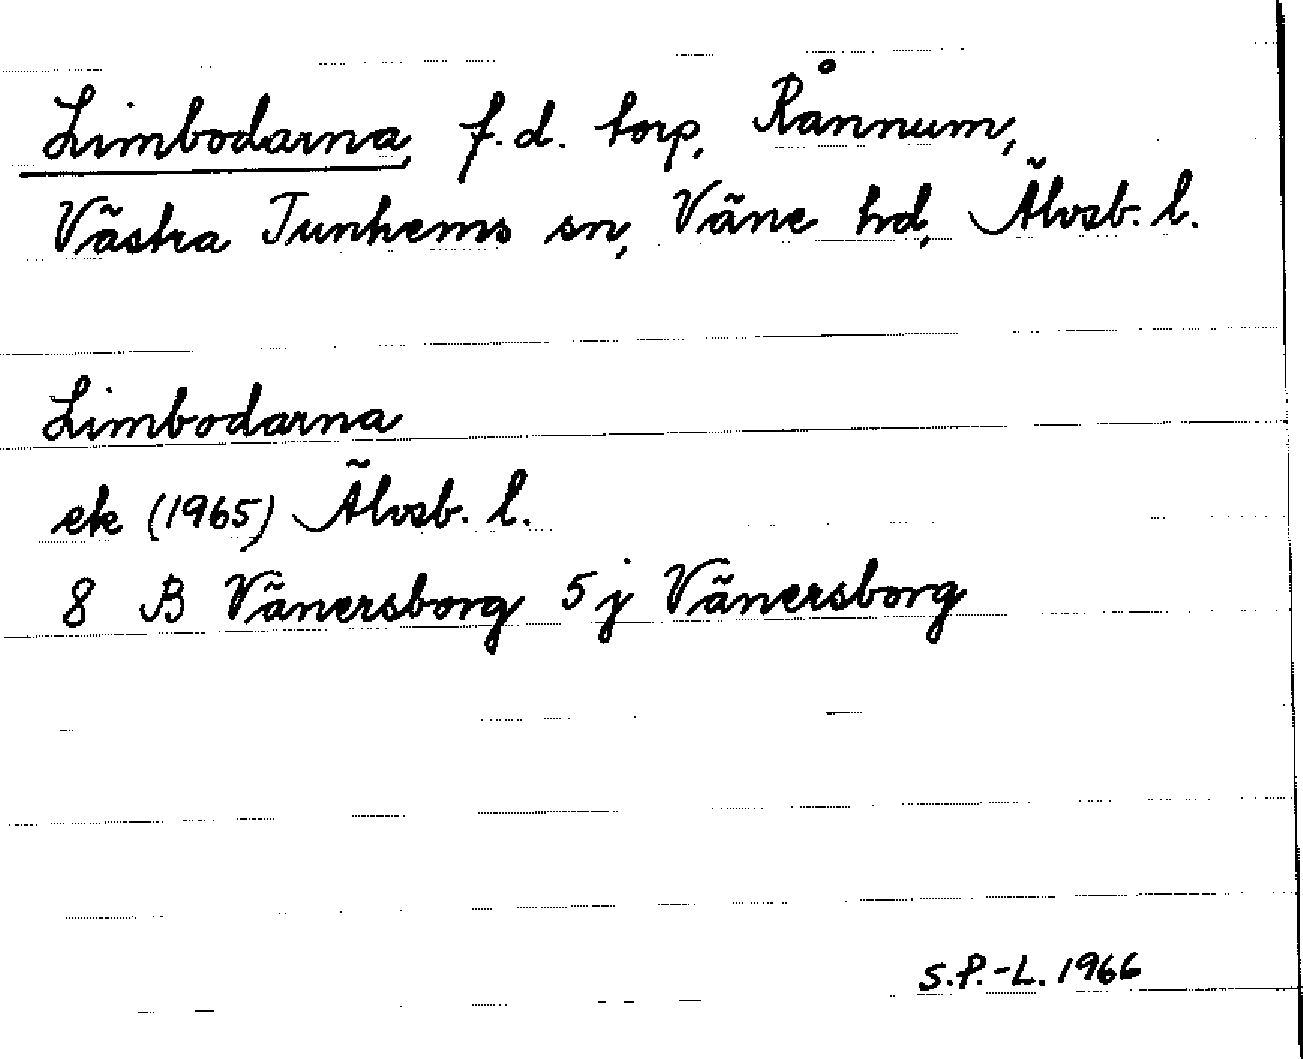 Limbodarna, f.d. torp, Rånnum,
Västra Tunhems sn, Väne hd, Älvsb. l.
Limbodarna
ek (1965) Älvsb. l.
8 B Vänersborg 5 j Vänersborg
S.P.-L. 1966